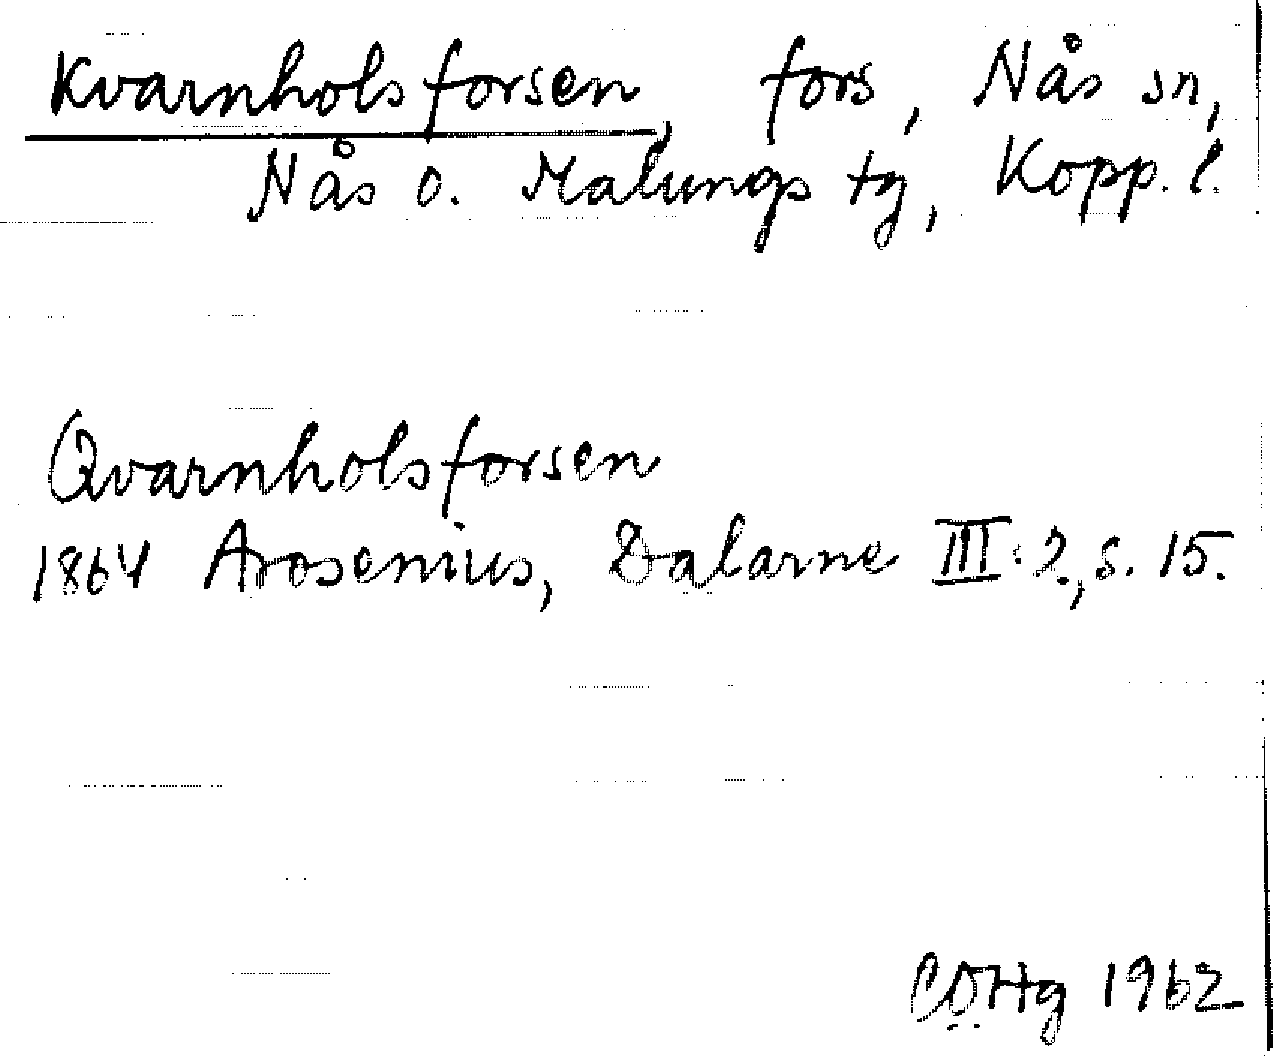 Kvarnholsforsen, fors, Nås sn,
Nås o. Malungs tg, Kopp. l.
Qvarnholsforsen
1864 Arosenius, Dalarne III:2, s. 15.
1962